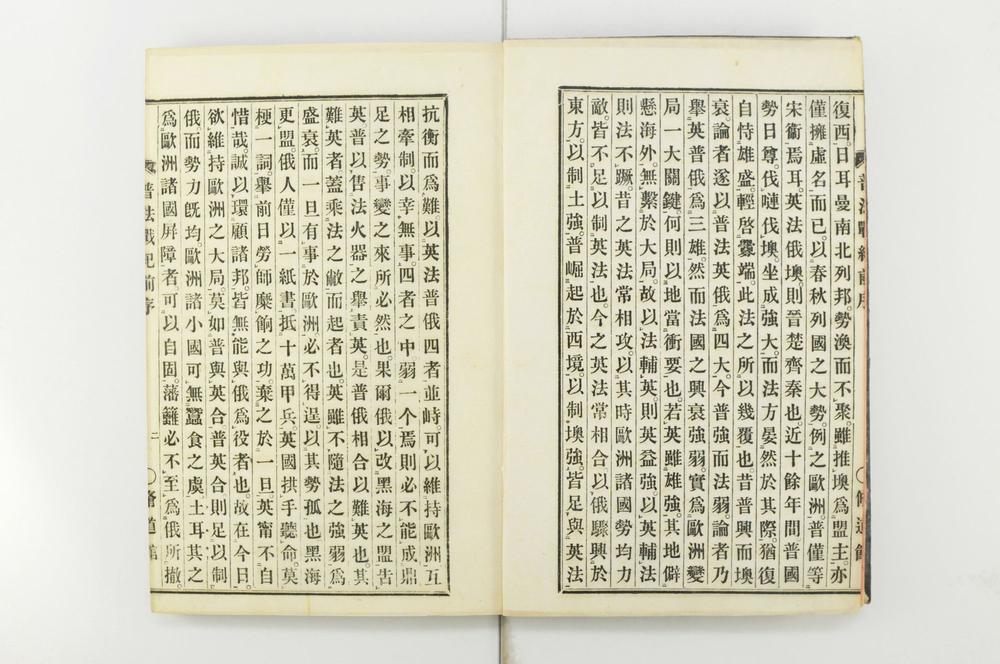 復西。日耳曼南北列邦勢渙而不聚。雖推墺爲盟主。亦
僅擁虛名而已。以春秋列國之大勢。例之歐洲。普僅等
宋衞焉耳。英法俄墺。則晉楚齊秦也。近十餘年間普國
勢日尊。伐嗹伐墺。坐成強大。而法方晏然於其際。猶復
自恃雄盛。輕啓釁端。此法之所以幾覆也。昔普興而墺
衰。論者遂以普法英俄爲四大。今普強而法弱。論者乃
舉英普俄爲三雄。然而法國之興衰強弱。實爲歐洲變
局一大關鍵。何則以地當衝要也。若英雖雄強。其地僻
懸海外。無繫於大局。故以法輔英。則英益強。以英輔法
則法不蹶。昔之英法常相攻。以其時歐洲諸國勢均力
敵。皆不足以制英法也。今之英法常相合。以俄驟興於
東方。以制土強。普崛起於西境。以制墺強。皆足與英法
普法戰紀前序
抗衡而爲難。以英法普俄四者並峙。可以維持歐洲互
相牽制。以幸無事。四者之中弱一个焉。則必不能成鼎
足之勢。事變之來所必然也。果爾俄以改黑海之盟告
英普以售法火器之舉責英。是普俄相合以難英也。其
難英者蓋乘法之敝而起者也。英雖不隨法之強弱爲
盛衰。而一旦有事於歐洲必不得逞。以其勢孤也黑海
更盟。俄人僅以一紙書。抵十萬甲兵。英國拱手聽命。莫
梗一詞。舉前日勞師糜餉之功。棄之於一旦。英甯不自
惜哉。誠以環顧諸邦。皆無能與俄爲役者也。故在今日。
欲維持歐洲之大局。莫如普與英合。普英合則足以制
俄。而勢力旣均。歐洲諸小國可無蠶食之虞。土耳其之
爲歐洲諸國屏障者。可以自固。藩籬必不至爲俄所撤。
普法戰紀前序
二
脩道館